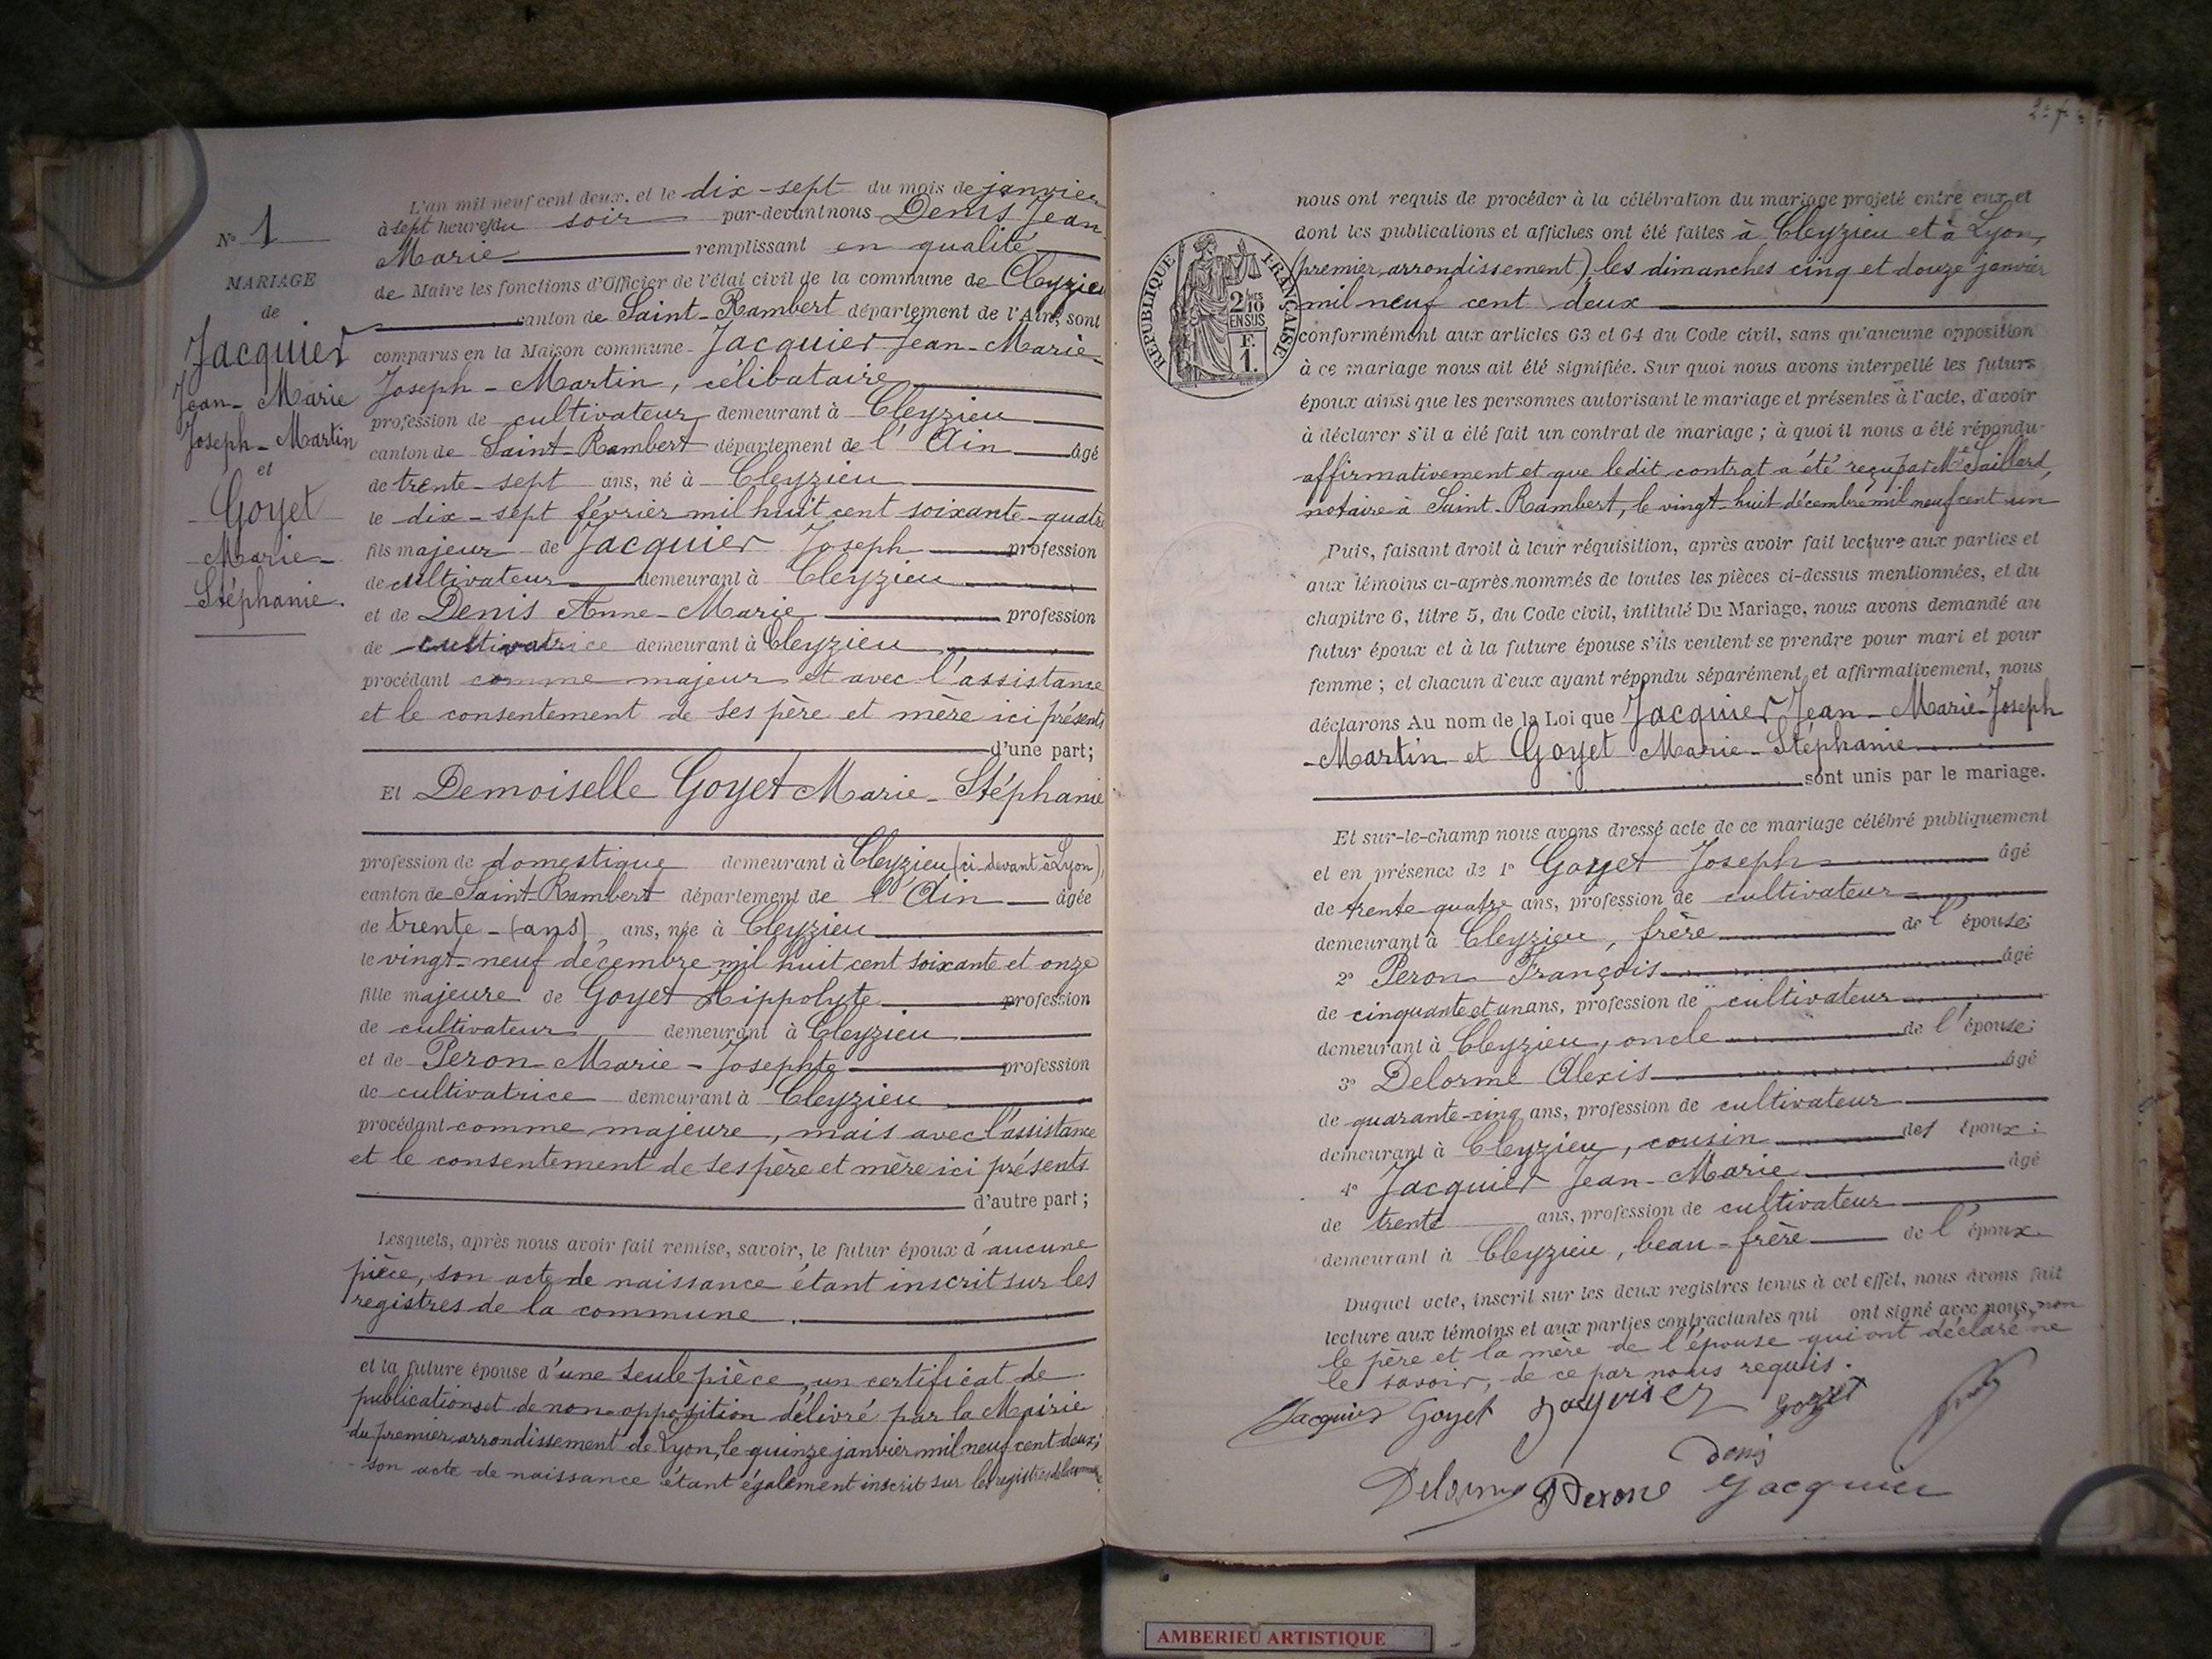 N° 1
MARIAGE
de
Jacquier
Jean-Marie
Joseph-Martin
et
Goyet
Marie-
Stéphanie.
L'an mil neuf cent deux, et le dix-sept du mois de janvier
à sept heures du soir par-devant nous Denis Jean
Marie remplissant en qualité
de Maire les fonctions d'Officier de l'état civil de la commune de Cleyzieu
canton de Saint-Rambert département de l'Ain, sont
comparus en la Maison commune Jacquier Jean-Marie-
Joseph-Martin, célibataire
profession de cultivateur demeurant à Cleyzieu
canton de Saint-Rambert département de l'Ain âgé
de trente-sept ans, né à Cleyzieu
le dix-sept février mil huit cent soixante-quatre
fils majeur de Jacquier Joseph profession
de cultivateur demeurant à Cleyzieu
et de Denis Anne-Marie profession
de cultivatrice demeurant à Cleyzieu
procédant comme majeur et avec l'assistance
et le consentement de ses père et mère ici présents
d'une part;
Et Demoiselle Goyet Marie-Stéphanie
profession de domestique demeurant à Cleyzieu (ci-devant à Lyon),
canton de Saint-Rambert département de l'Ain âgée
de trente-(ans), ans, née à Cleyzieu
le vingt-neuf décembre mil huit cent soixante et onze
fille majeure de Goyet Hippolyte profession
de cultivateur demeurant à Cleyzieu
et de Peron Marie-Josephte profession
de cultivatrice demeurant à Cleyzieu
procédant comme majeure, mais avec l'assistance
et le consentement de ses père et mère ici présents
d'autre part;
Lesquels, après nous avoir fait remise, savoir, le futur époux d'aucune
pièce, son acte de naissance étant inscrit sur les
registres de la commune.
et la future épouse d'une seule pièce, un certificat de
publications et de non-opposition délivré par la Mairie
du premier arrondissement de Lyon, le quinze janvier mil neuf cent deux;
son acte de naissance étant également inscrit sur les registres de la commune.
nous ont requis de procéder à la célébration du mariage projeté entre eux et
dont les publications et affiches ont été faites à Cleyzieu et à Lyon,
(premier arrondissement), les dimanches cinq et douze janvier
mil neuf cent deux
RÉPUBLIQUE FRANÇAISE
2/10 MES
EN SUS
F.
1.
conformément aux articles 63 et 64 du Code civil, sans qu'aucune opposition
à ce mariage nous ait été signifiée. Sur quoi nous avons interpellé les futurs
époux ainsi que les personnes autorisant le mariage et présentes à l'acte, d'avoir
à déclarer s'il a été fait un contrat de mariage; à quoi il nous a été répondu
affirmativement et que ledit contrat a été reçu par Me Saillard,
notaire à Saint-Rambert, le vingt-huit décembre mil neuf cent un
Puis, faisant droit à leur réquisition, après avoir fait lecture aux parties et
aux témoins ci-après nommés de toutes les pièces ci-dessus mentionnées, et du
chapitre 6, titre 5, du Code civil, intitulé Du Mariage, nous avons demandé au
futur époux et à la future épouse s'ils veulent se prendre pour mari et pour
femme; et chacun d'eux ayant répondu séparément et affirmativement, nous
déclarons Au nom de la Loi que Jacquier Jean-Marie-Joseph
-Martin et Goyet Marie-Stéphanie
sont unis par le mariage.
Et sur-le-champ nous avons dressé acte de ce mariage célébré publiquement
et en présence de 1° Goyet Joseph âgé
de trente quatre ans, profession de cultivateur
demeurant à Cleyzieu, frère de l'épouse;
2° Peron François âgé
de cinquante et un ans, profession de cultivateur
demeurant à Cleyzieu, oncle de l'épouse;
3° Delorme Alexis âgé
de quarante-cinq ans, profession de cultivateur
demeurant à Cleyzieu, cousin des époux;
4° Jacquier Jean-Marie âgé
de trente ans, profession de cultivateur
demeurant à Cleyzieu, beau-frère de l'époux
Duquel acte, inscrit sur les deux registres tenus à cet effet, nous avons fait
lecture aux témoins et aux parties contractantes qui ont signé avec nous, non
le père et la mère de l'épouse qui ont déclaré ne
le savoir, de ce par nous requis.
Jacquier Goyet Jacquier Goyet
Denis
Delorme Peron Jacquier
AMBERIEU ARTISTIQUE